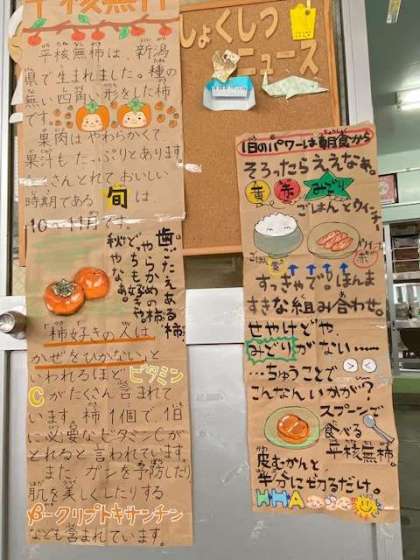 平核無柿
平核無柿は、新潟
県で生まれました。種の
無い四角い形をした柿
です。
果肉はやわらかくて
果汁もたっぷりとあります。
たくさんとれておいしい
時期である旬は
10〜11月です。
歯ごたえある柿
やらかめの柿
どちも好きや。
秋やなぁ。
「柿好きの人は
かぜをひかない」と
いわれるほどビタミン
Cがたくさん含まれて
います。柿1個で、1日
に必要なビタミンCが
とれると言われています。
また、ガンを予防したり
肌を美しくしたりする
β-クリプトキサンチン
なども含まれています。
しょくしつ
ニュース
1日のパワーは朝食から
そろったらええなぁ。
黄 赤 みどり
ごはんとウインナー
すっきゃで。ほんま
すきな組み合わせ。
せやけどや、
みどりがない……
…ちゅうことで
こんなんいかが?
スプーンで
食べる
平核無柿。
皮むかんと
半分にせつるだけ。